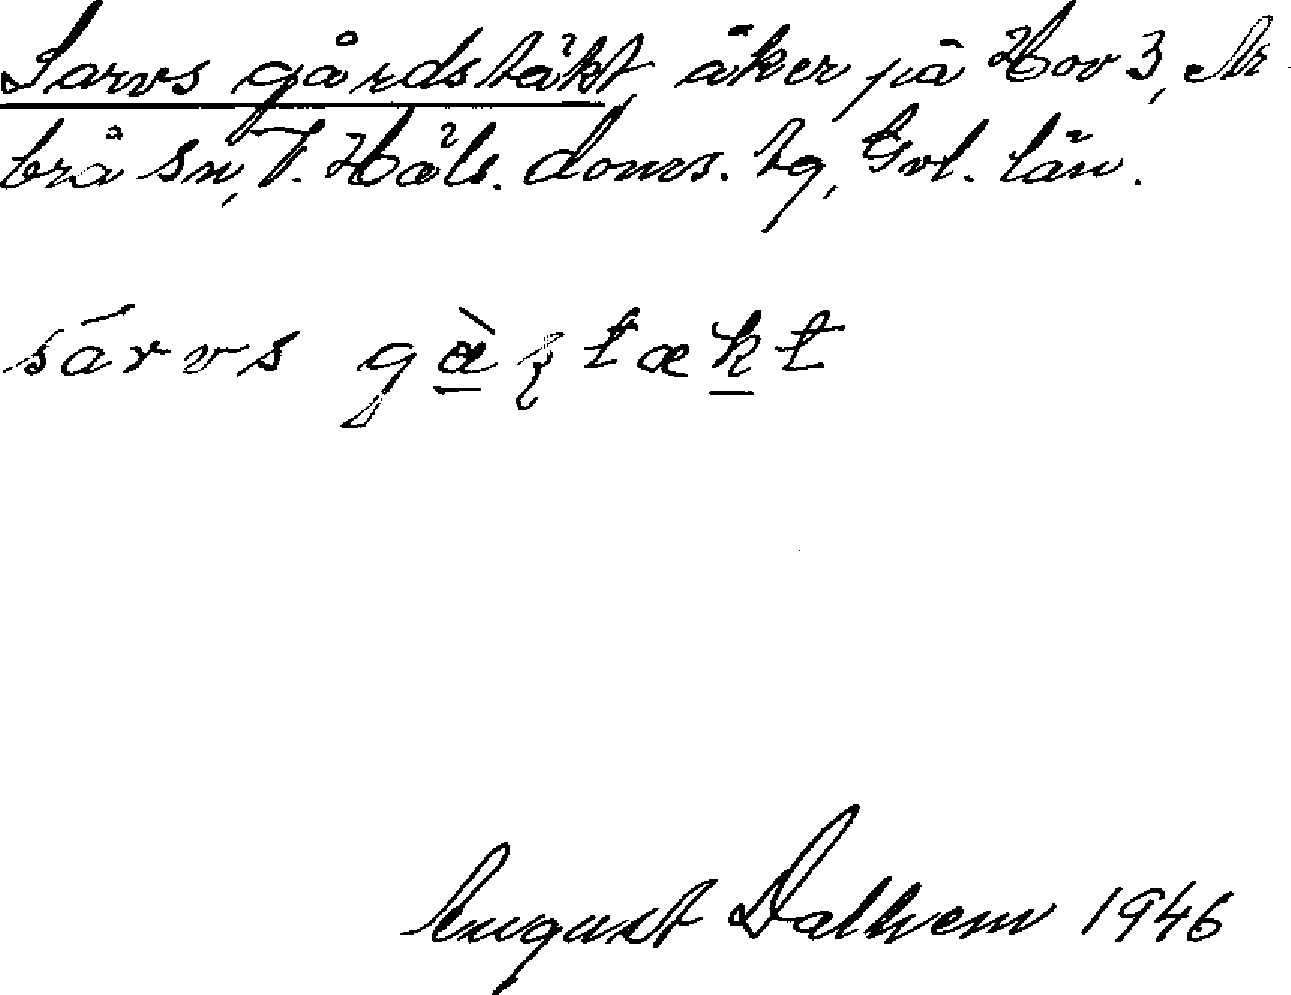 Sarvs gårdstäkt, åker på Hov 3, Al-
brå sn, V. Häls. doms. tg, Gvl. län.
sárvs gàʂtækt
August Dalhem 1946